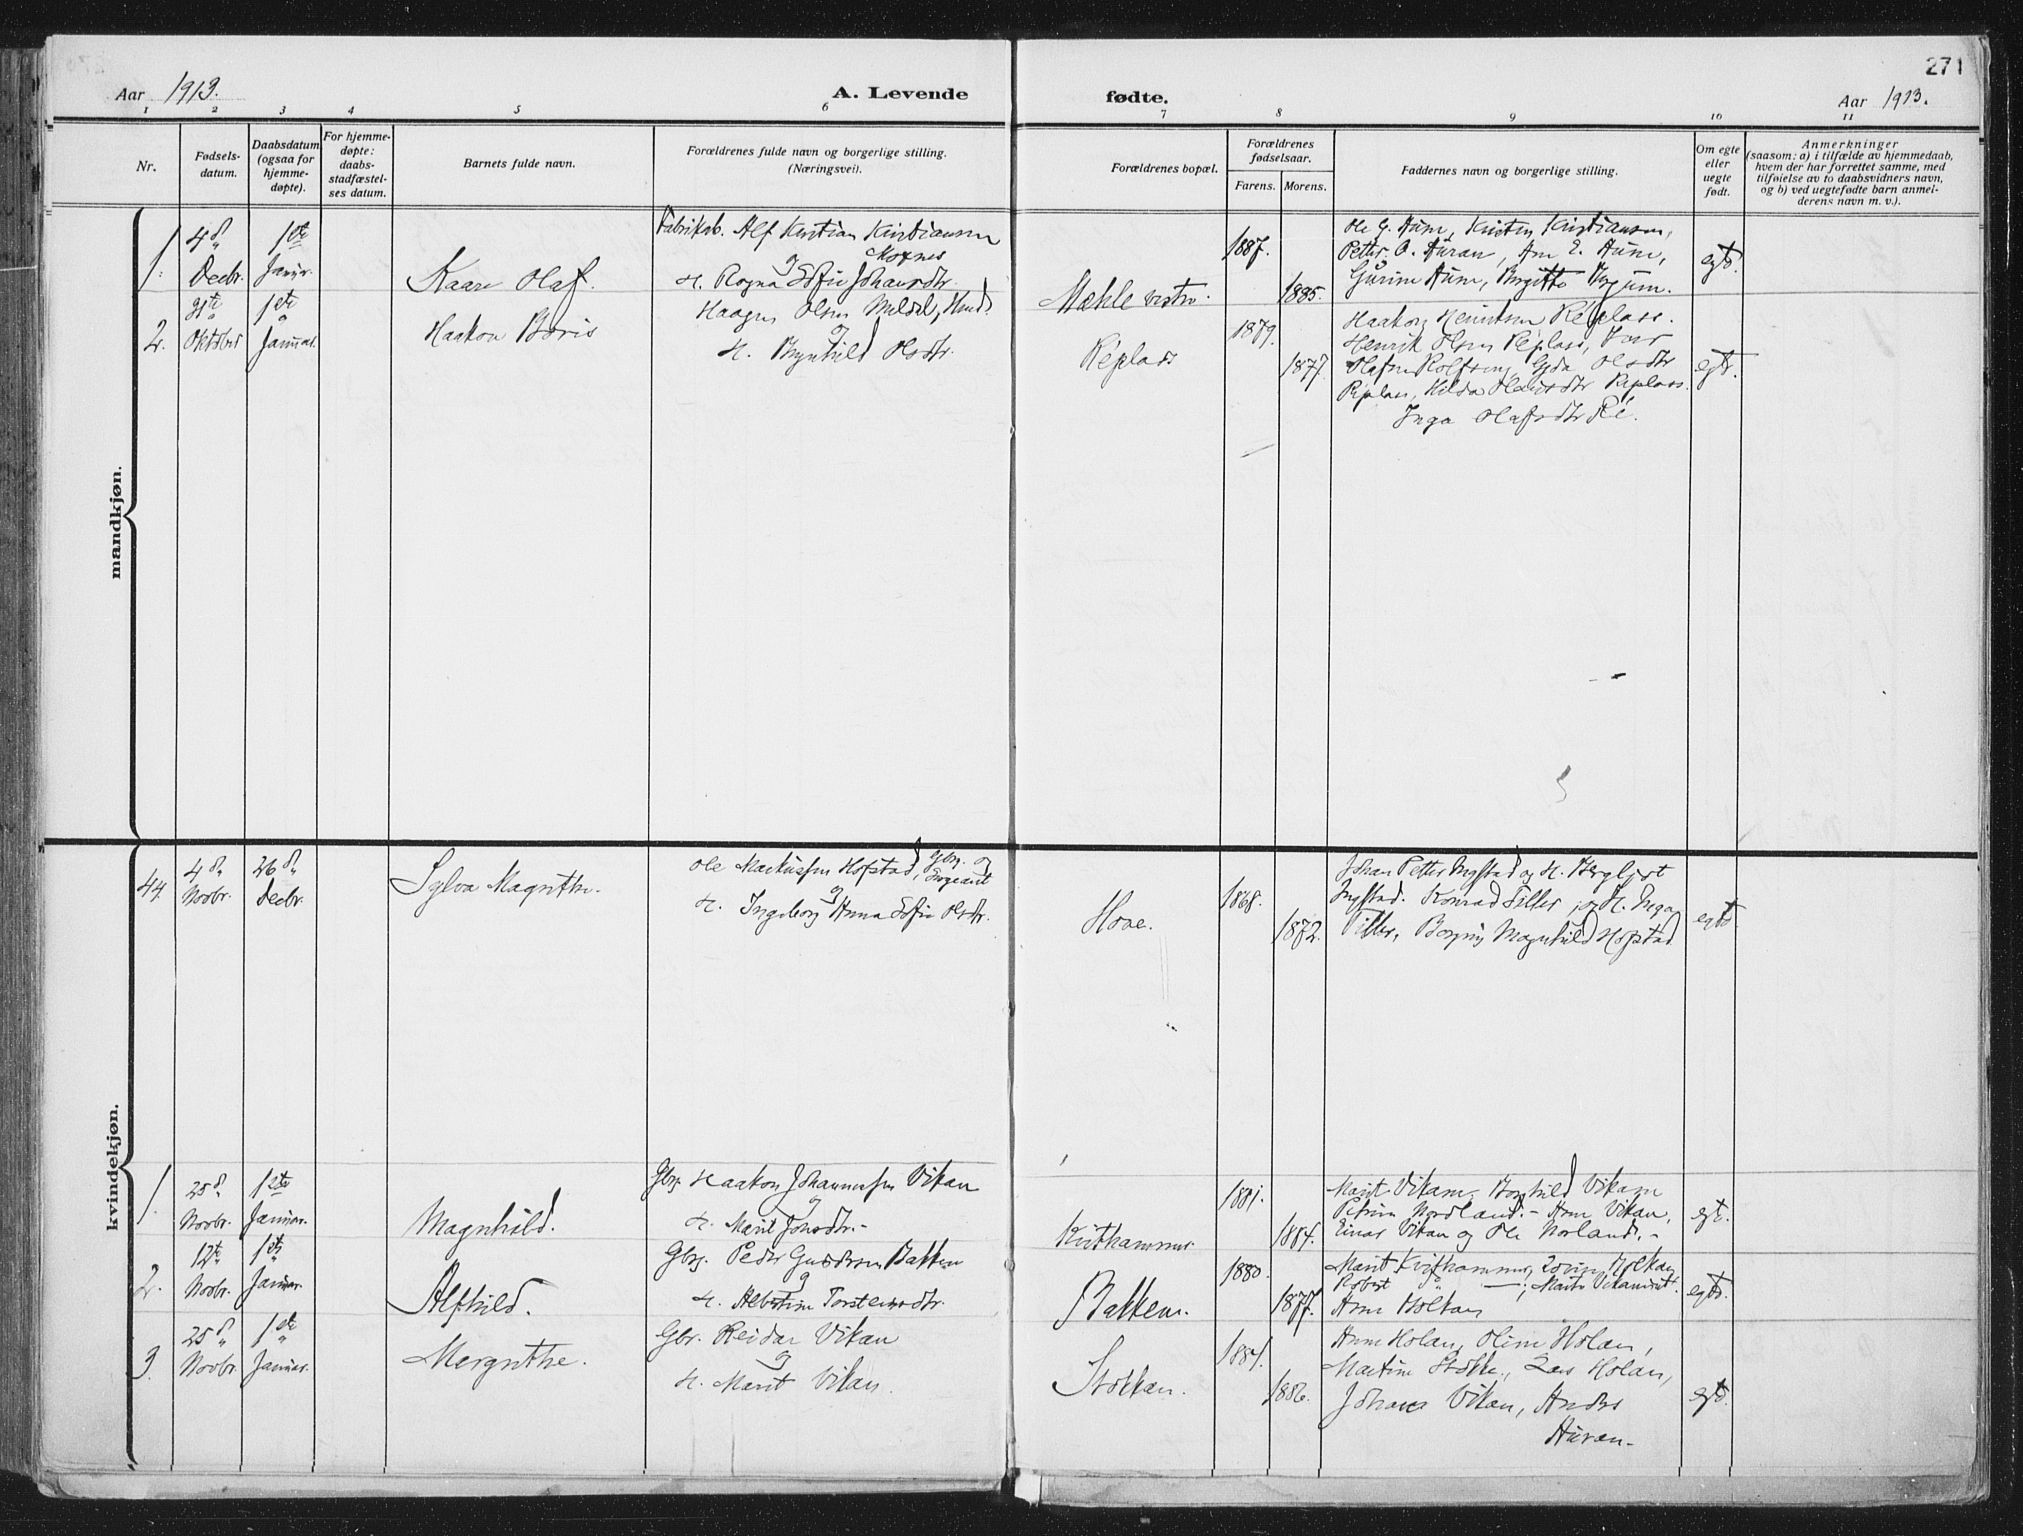 271
Aar 1913.
A. Levende fødte.
Aar 1913.
1 2 3 4 5 6 7 8 9 10 11
Nr.
Fødsels-
datum.
Daabsdatum
(ogsaa for
hjemme-
døpte).
For hjemme-
døpte:
daabs-
stadfæstel-
ses datum.
Barnets fulde navn.
Forældrenes fulde navn og borgerlige stilling.
(Næringsvei).
Forældrenes bopæl.
Forældrenes
fødselsaar.
Farens. Morens.
Faddernes navn og borgerlige stilling.
Om egte
eller
uegte
født.
Anmerkninger
(saasom: a) i tilfælde av hjemmedaab,
hvem der har forrettet samme, med
tilføielse av to daabsvidners navn,
og b) ved uegtefødte barn anmel-
derens navn m. v.).
mandkjøn.
1.
4d
Decbr.
1ste
Janr.
Kaare Olaf.
Fabrikb. Alf Kristian Kristiansen
Moxnes
og
H. Ragna Sofie Johansdtr.
Mæhle vestre.
1887.
1885.
Ole G. Aune, Kristen Kristiansen,
Petter O. Auran, Ane E. Aune,
Gurine Aune, Birgitte
egte.
2.
31te
Oktober
1ste
Januar.
Haakon Boris
Haagen Olsen
og
H. Bynhild Olsdtr.
Réplads
1879.
1877.
Haakon Henriksen Réplass.
Henrik Olsen Réplass, Ivar
Olafsen Rolfseng, Gjda Olsdtr
Réplass, Hilda Olausdtr Réplass.
Inga Olafsdtr Ré.
egte.
kvindekjøn.
44.
4d
Novbr.
26d
Decbr.
Sylva Magrethe.
Ole Markussen Hofstad, gbr. og
Sergeant
og
H. Ingeborg Anna Sofie Olsdtr.
Hove.
1868.
1872.
Johan Petter Mystad og H. Bergljot
Mystad. Konrad Tiller og H. Inga
Tiller, Magnhild Hofstad
egte
1.
25d
Novbr.
1ste
Januar.
Magnhild.
Gbr. Haakon Johannessen Vikan
og
H. Marit Jonsdtr.-
Kvithammer
1881.
1884.
Marit Vikan, Borghild Vikan
Petrine Nordland. - Arne Vikan,
Einar Vikan og Ole Norland. -
egte.
2.
12te
Novbr.
1ste
Januar.
Alfhild.
Gbr. Peder Gundersen Bakken
og
H. Albertine Torstensdtr.
Bakken.
1880.
1877.
Marit Kvithammer, Holkan
Robert " —, Marit
Arne Holkan
egte.
3.
25d
Novbr.
1ste
Januar.
Margrethe.
Gbr. Reidar Vikan
og
H. Marit Vikan.
Stokkan.
1884.
1886.
Anne Holan, Oline Holan,
Martin Stokke, Lars Holan,
Johan Vikan, Anders
Auran-
egte.